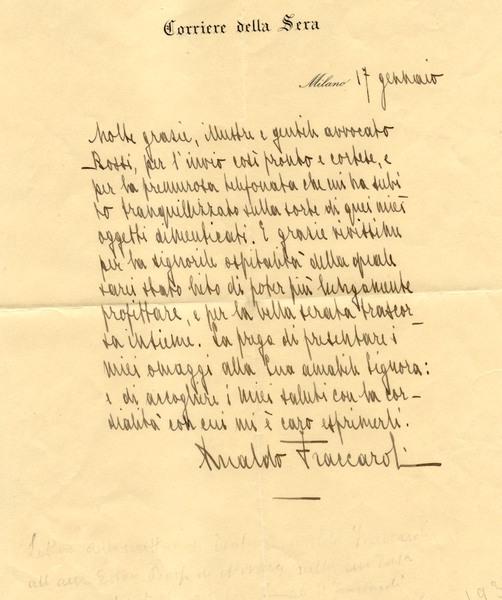 Corriere della Sera
Milano 17 gennaio
Molte grazie, illustre e gentile avvocato
Rossi, per l'invio così pronto e cortese, e
per la premurosa telefonata che mi ha subi
to tranquillizzato sulla sorte di quei miei
oggetti dimenticati. E grazie vivissime
per la signorile ospitalità della quale
sarei stato lieto di poter più lungamente
profittare, e per la bella serata trascor
sa insieme. La prego di presentare i
miei omaggi alla Sua amabile Signora:
e di accogliere i miei saluti con la cor-
dialità con cui mi è caro esprimerli.
Arnaldo Fraccaroli